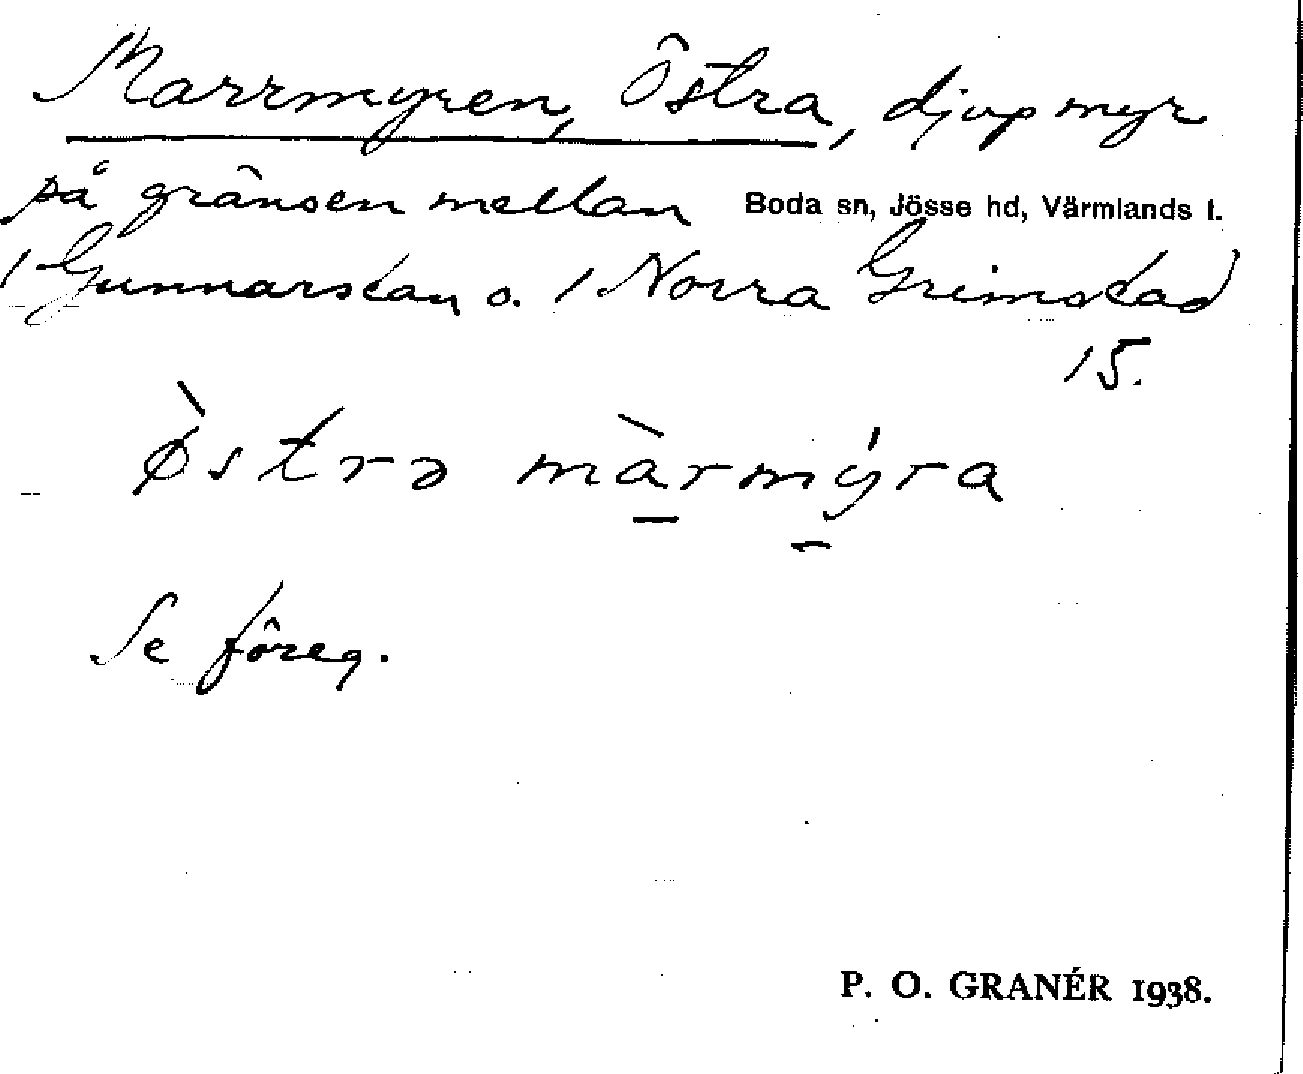 Marrmyren, Östra, djup myr
på gränsen mellan Boda sn, Jösse hd, Värmlands l.
/ Gunnarskau o. / Norra Grimstad
15.
ø̀strə màrmýra
Se föreg.
P. O. GRANÉR 1938.